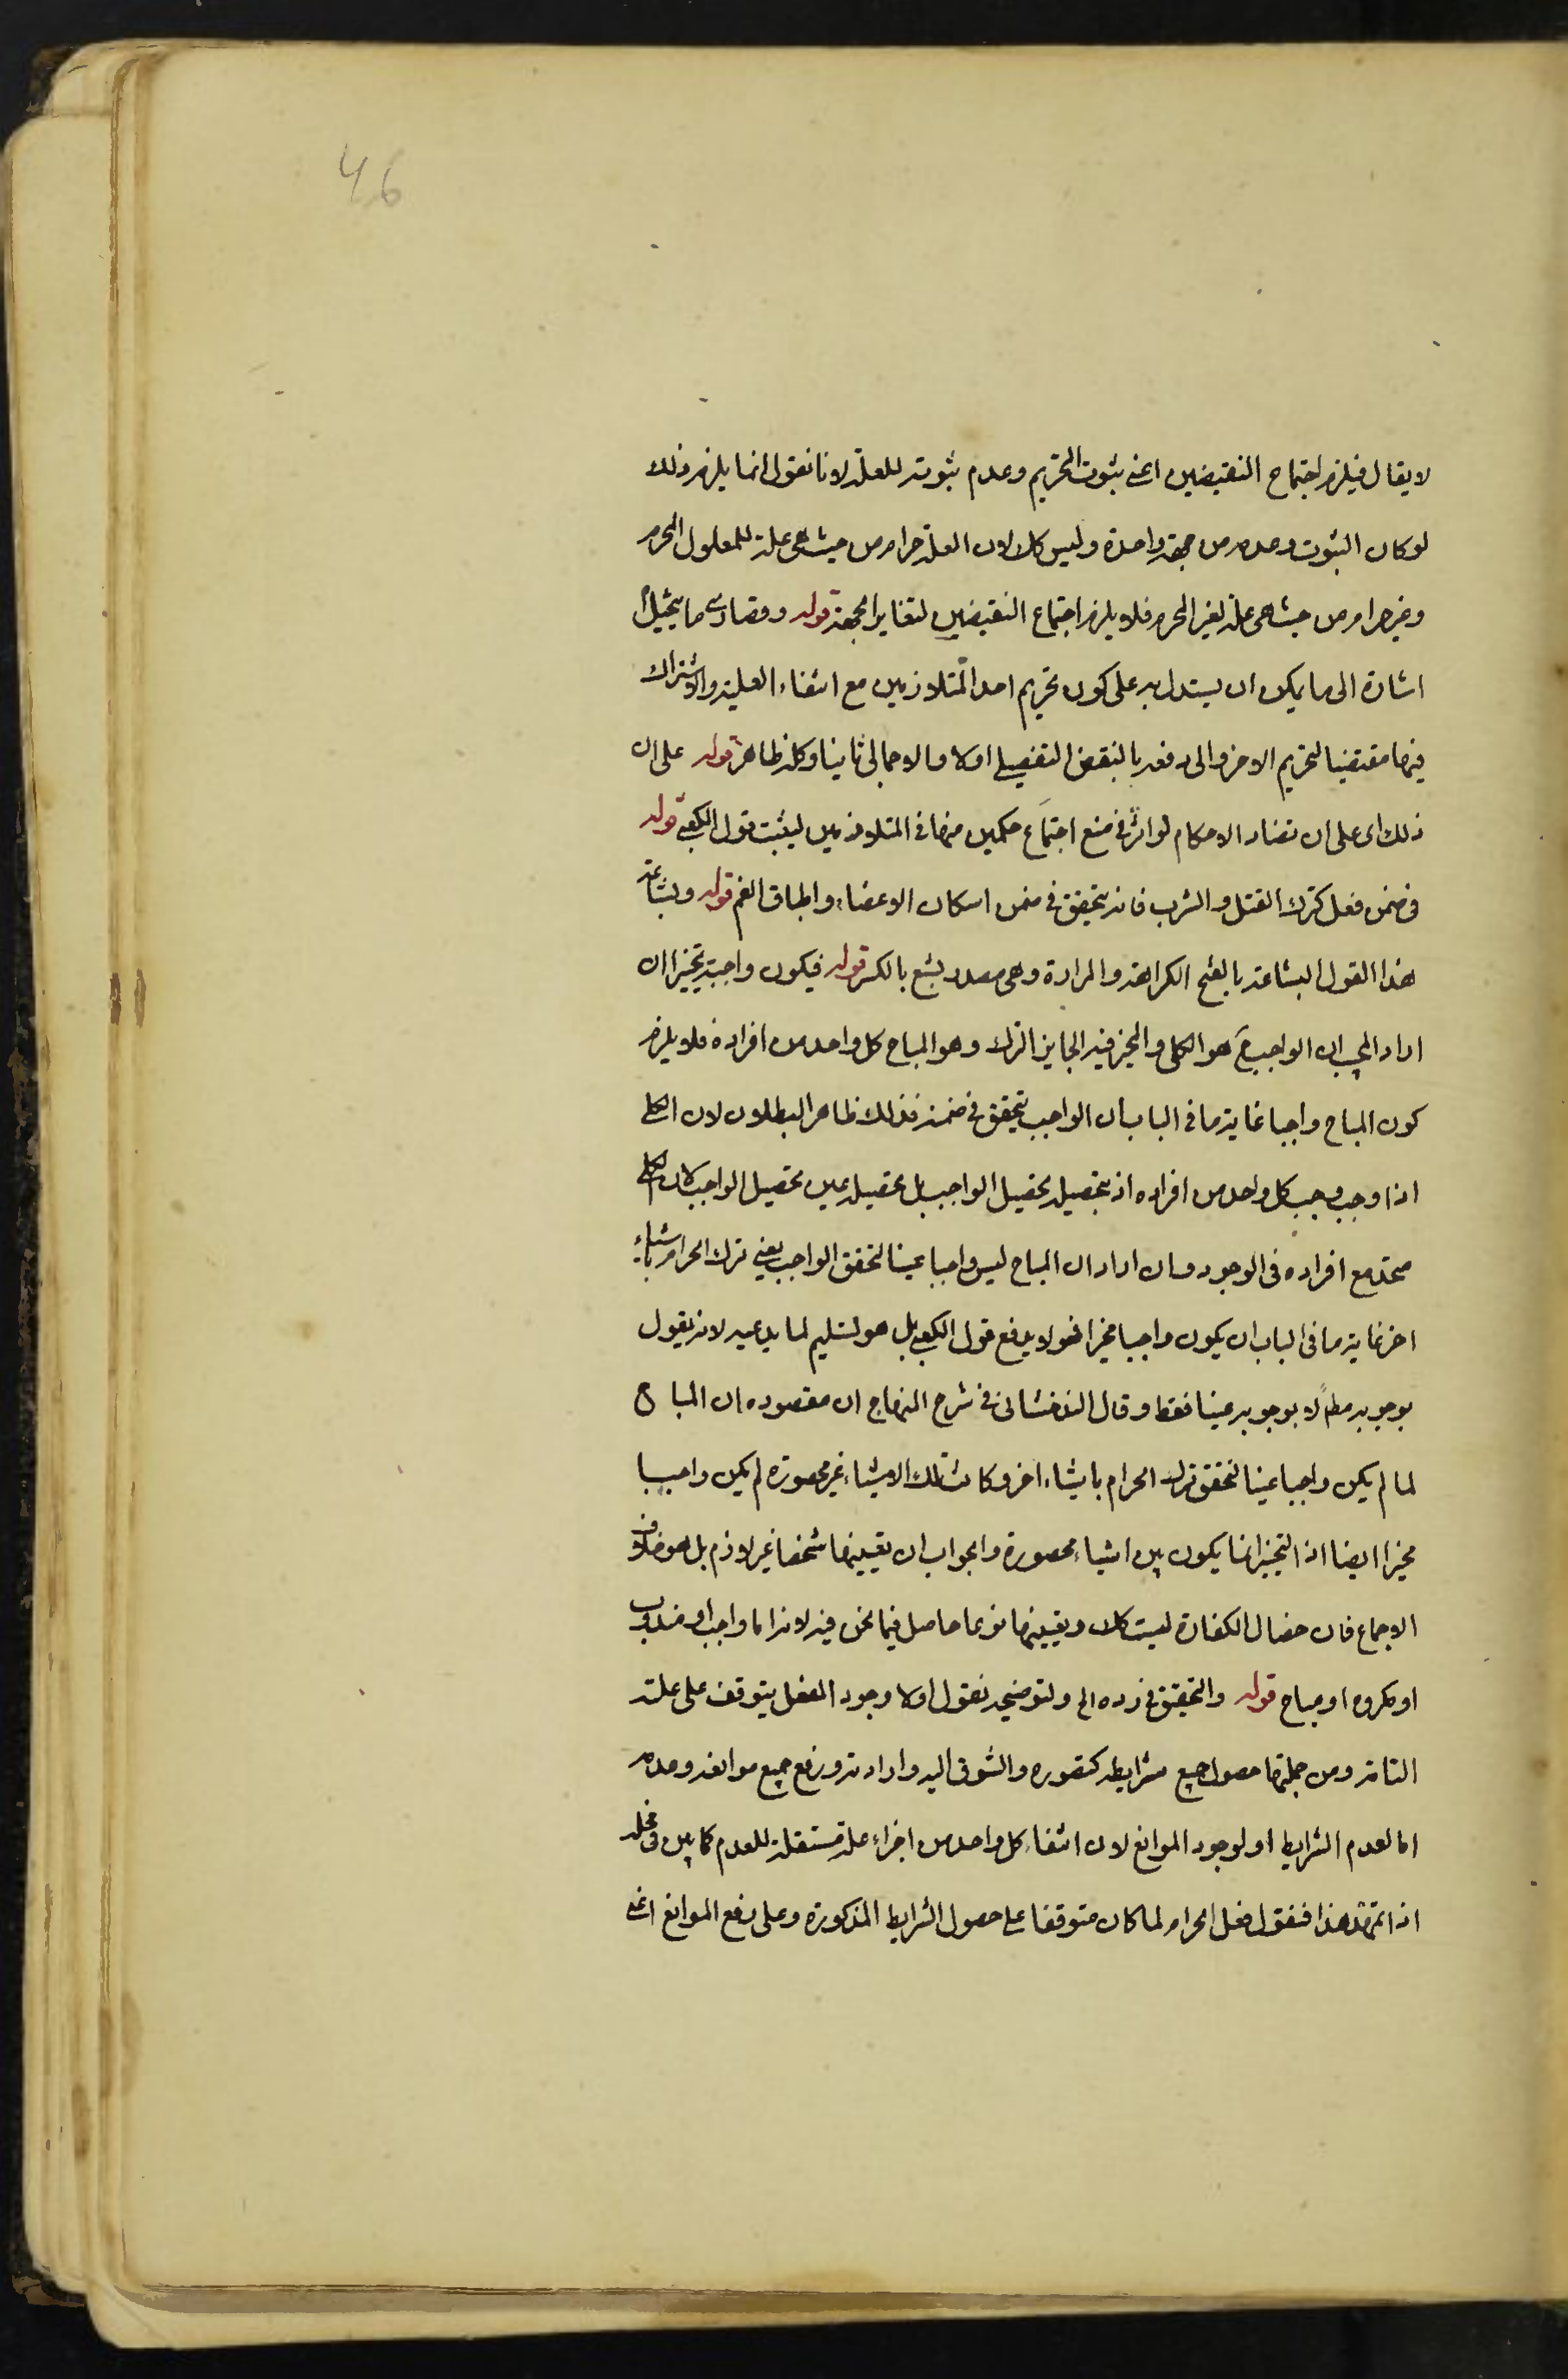 46
لا يقال فيلزم اجتماع النقيضين اعنى ثبوت التحريم وعدم ثبوته للعلة لانا نقول انما يلزم ذلك
لو كان الثبوت وعدمه من جهة واحدة وليس كك لان العلة حرام من حيث هى علة للمعلول المحرم
وغير حرام من حيث هى علة لغير المحرم فلا يلزم اجتماع النقيضين لتغاير الجهة قوله وقصارى ما يتخيل
اشارة الى ما يمكن ان يستدل به على كون تحريم احد المتلازمين مع انتفاء العلية والاشتراك
فيها مقتضيا لتحريم الاخر والى دفعه بالنقض التفصيلى اولا والاجمالى ثانيا وكله ظاهر قوله على ان
ذلك اى على ان تضاد الاحكام لو اثر فى منع اجتماع حكمين منها فى المتلازمين ليثبت قول الكعبى قوله
فى ضمن فعل كترك القتل والشرب فانه يتحقق فى ضمن اسكان الاعضاء واطباق الفم قوله وبشاعة
هذا القول البشاعة بالفتح الكراهة والمرارة وهى مصدر بشع بالكسر قوله فيكون واجبة تخييرا ان
اراد المجيب ان الواجب هو الكلى والمخير فيه الجايز الترك وهو المباح كل واحد من افراده فلا يلزم
كون المباح واجبا غاية ما فى الباب ان الواجب يتحقق فى ضمنه فذلك ظاهر البطلان لان الكلى
اذا وجب وجب كل واحد من افراده اذ بتحصيله يحصل الواجب بل تحصيله عين تحصيل الواجب لان الكلى
متحد مع افراده فى الوجود وان اراد ان المباح ليس واجبا عينا لتحقق الواجب يعنى ترك الحرام باشياء
اخر غاية ما فى الباب ان يكون واجبا مخيرا فهو لا يدفع قول الكعبى بل هو تسليم لما يدعيه لانه يقول
بوجوبه مط لا بوجوبه عينا فقط وقال البدخشانى فى شرح المنهاج ان مقصوده ان المباح
لما لم يكن واجبا عينا لتحقق ترك الحرام باشياء اخر وكانت تلك الاشياء غير محصورة لم يكن واجبا
مخيرا ايضا اذ التخيير انما يكون بين اشياء محصورة والجواب ان تعيينها شخصا غير لازم بل هو خلاف
الاجماع فان خصال الكفارة ليست كك وتعيينها نوعا حاصل فيما نحن فيه لانه اما واجب او مندوب
او مكروه او مباح قوله والتحقيق فى رده الى ولتوضيحه نقول اولا وجود الفعل يتوقف على علته
التامة ومن جملتها حصول جميع شرايطه كتصوره والشوق اليه وارادته ورفع جميع موانعه وعدمه
اما لعدم الشرايط او لوجود الموانع لان انتفاء كل واحد من اجزاء علة مستقلة للعدم كما بين فى محله
اذا تمهد هذا فنقول فعل الحرام لما كان متوقفا على حصول الشرايط المذكورة وعلى رفع الموانع اعنى